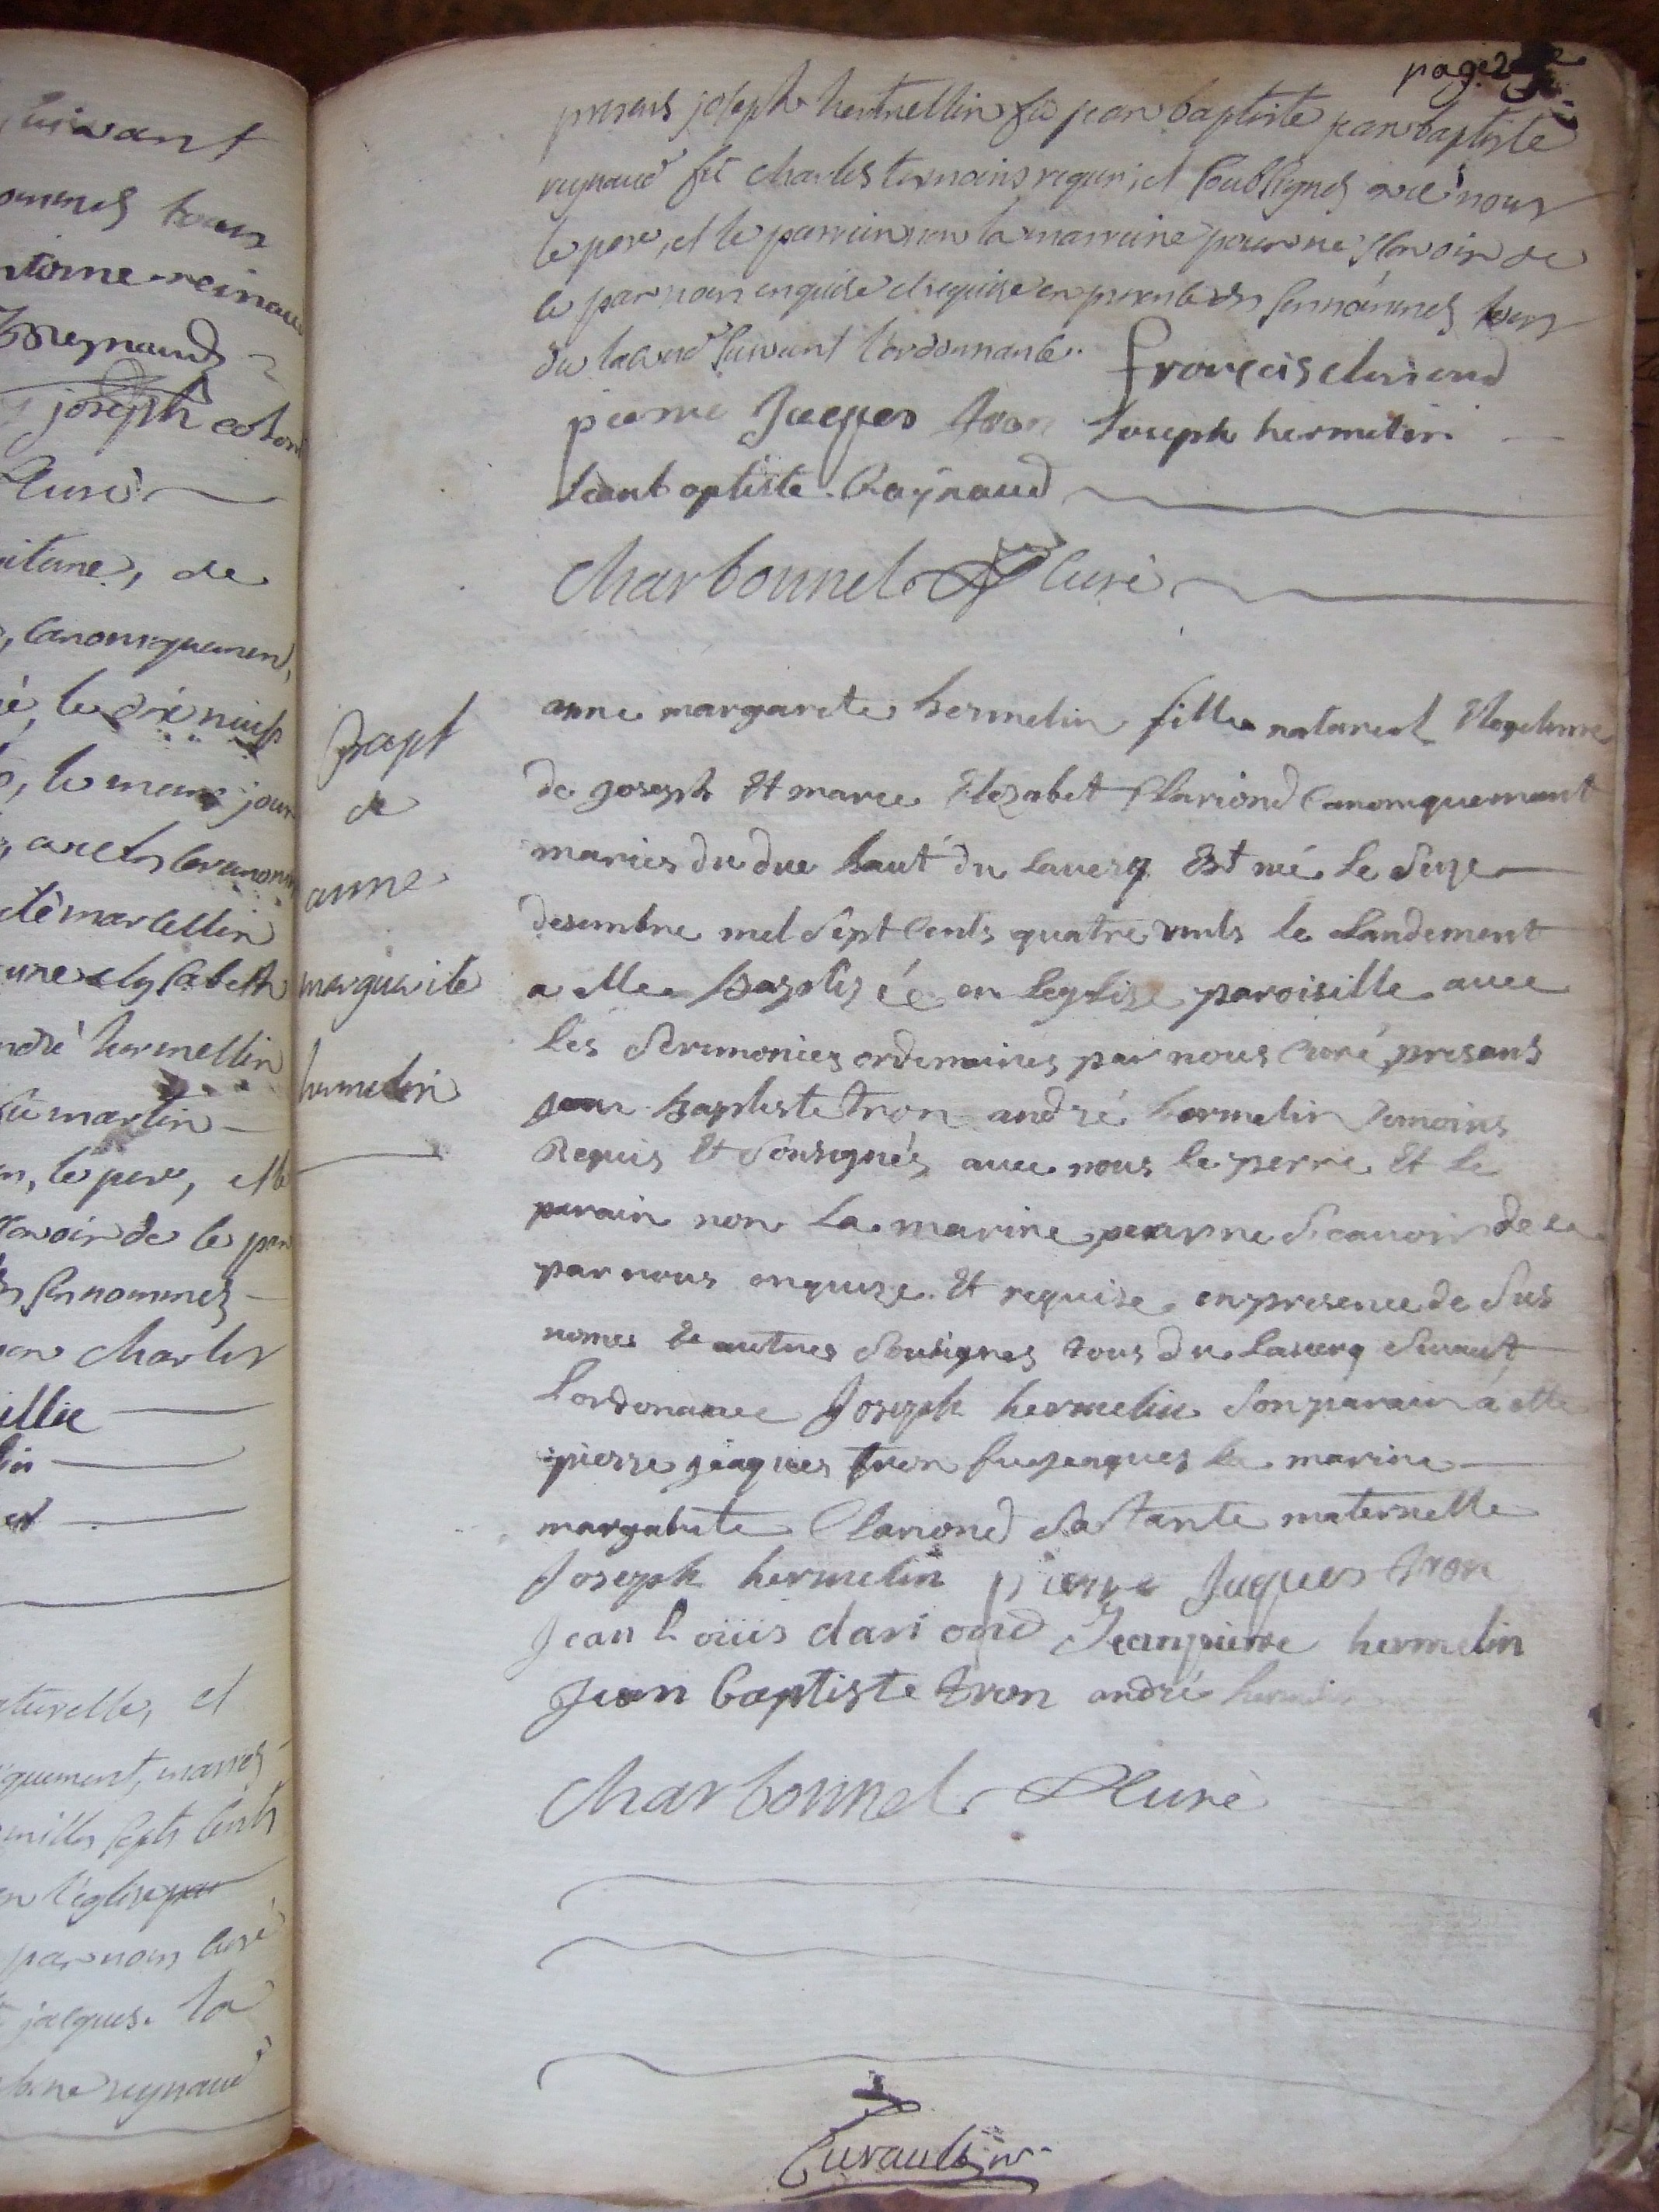 suivant
joseph
Curé
de
canoniquement,
le même jour
marcellin
hermellin
martin
le pere,
charles
et
jacques. la
reynaud
page
presens joseph hermellin fû jean baptiste jean baptiste
reynaud fû charles temoins requis, et soubsignes avec nous
le pere, et le parrain non la marraine pour ne sçavoir de
le par nous enquise et requise en presence des surnommes tous
du laverq suivant l'ordonnance.. françois clariond
pierre Jacques tron Joseph hermelin
Jeanbaptiste Raynaud
Charbonnel Curé
Bapt
de
anne
marguerite
hermelin
anne margarite hermelin fille naturel Et legetime
de joseph Et marie Elezabet Clariond Canoniquement
maries du due haut du laverq Est né le Seize
desembre mil Sept Cents quatre vints le landement
a elle baptizéé en leglise paroisille avec
les Serimonies ordinaires par nous Curé presans
jean baptiste tron andré hermelin temoins
Requis Et Sousignés avec nous le perre Et le
parain non la marine pour ne Scavoir de le
par nous enquize Et requise en presence de Sus
nomes Et autres Sousignes tous du laverq Suivant
lordonance Joseph hermelin Son parain a été
pierre jaques tron fue jaques la marine
margarite Clariond Sa tante maternelle
Joseph hermelin pierre Jaques tron
Jean Louis clariond Jeanpierre hermelin
Jean Baptiste tron andré hermelin
Charbonnel Curé